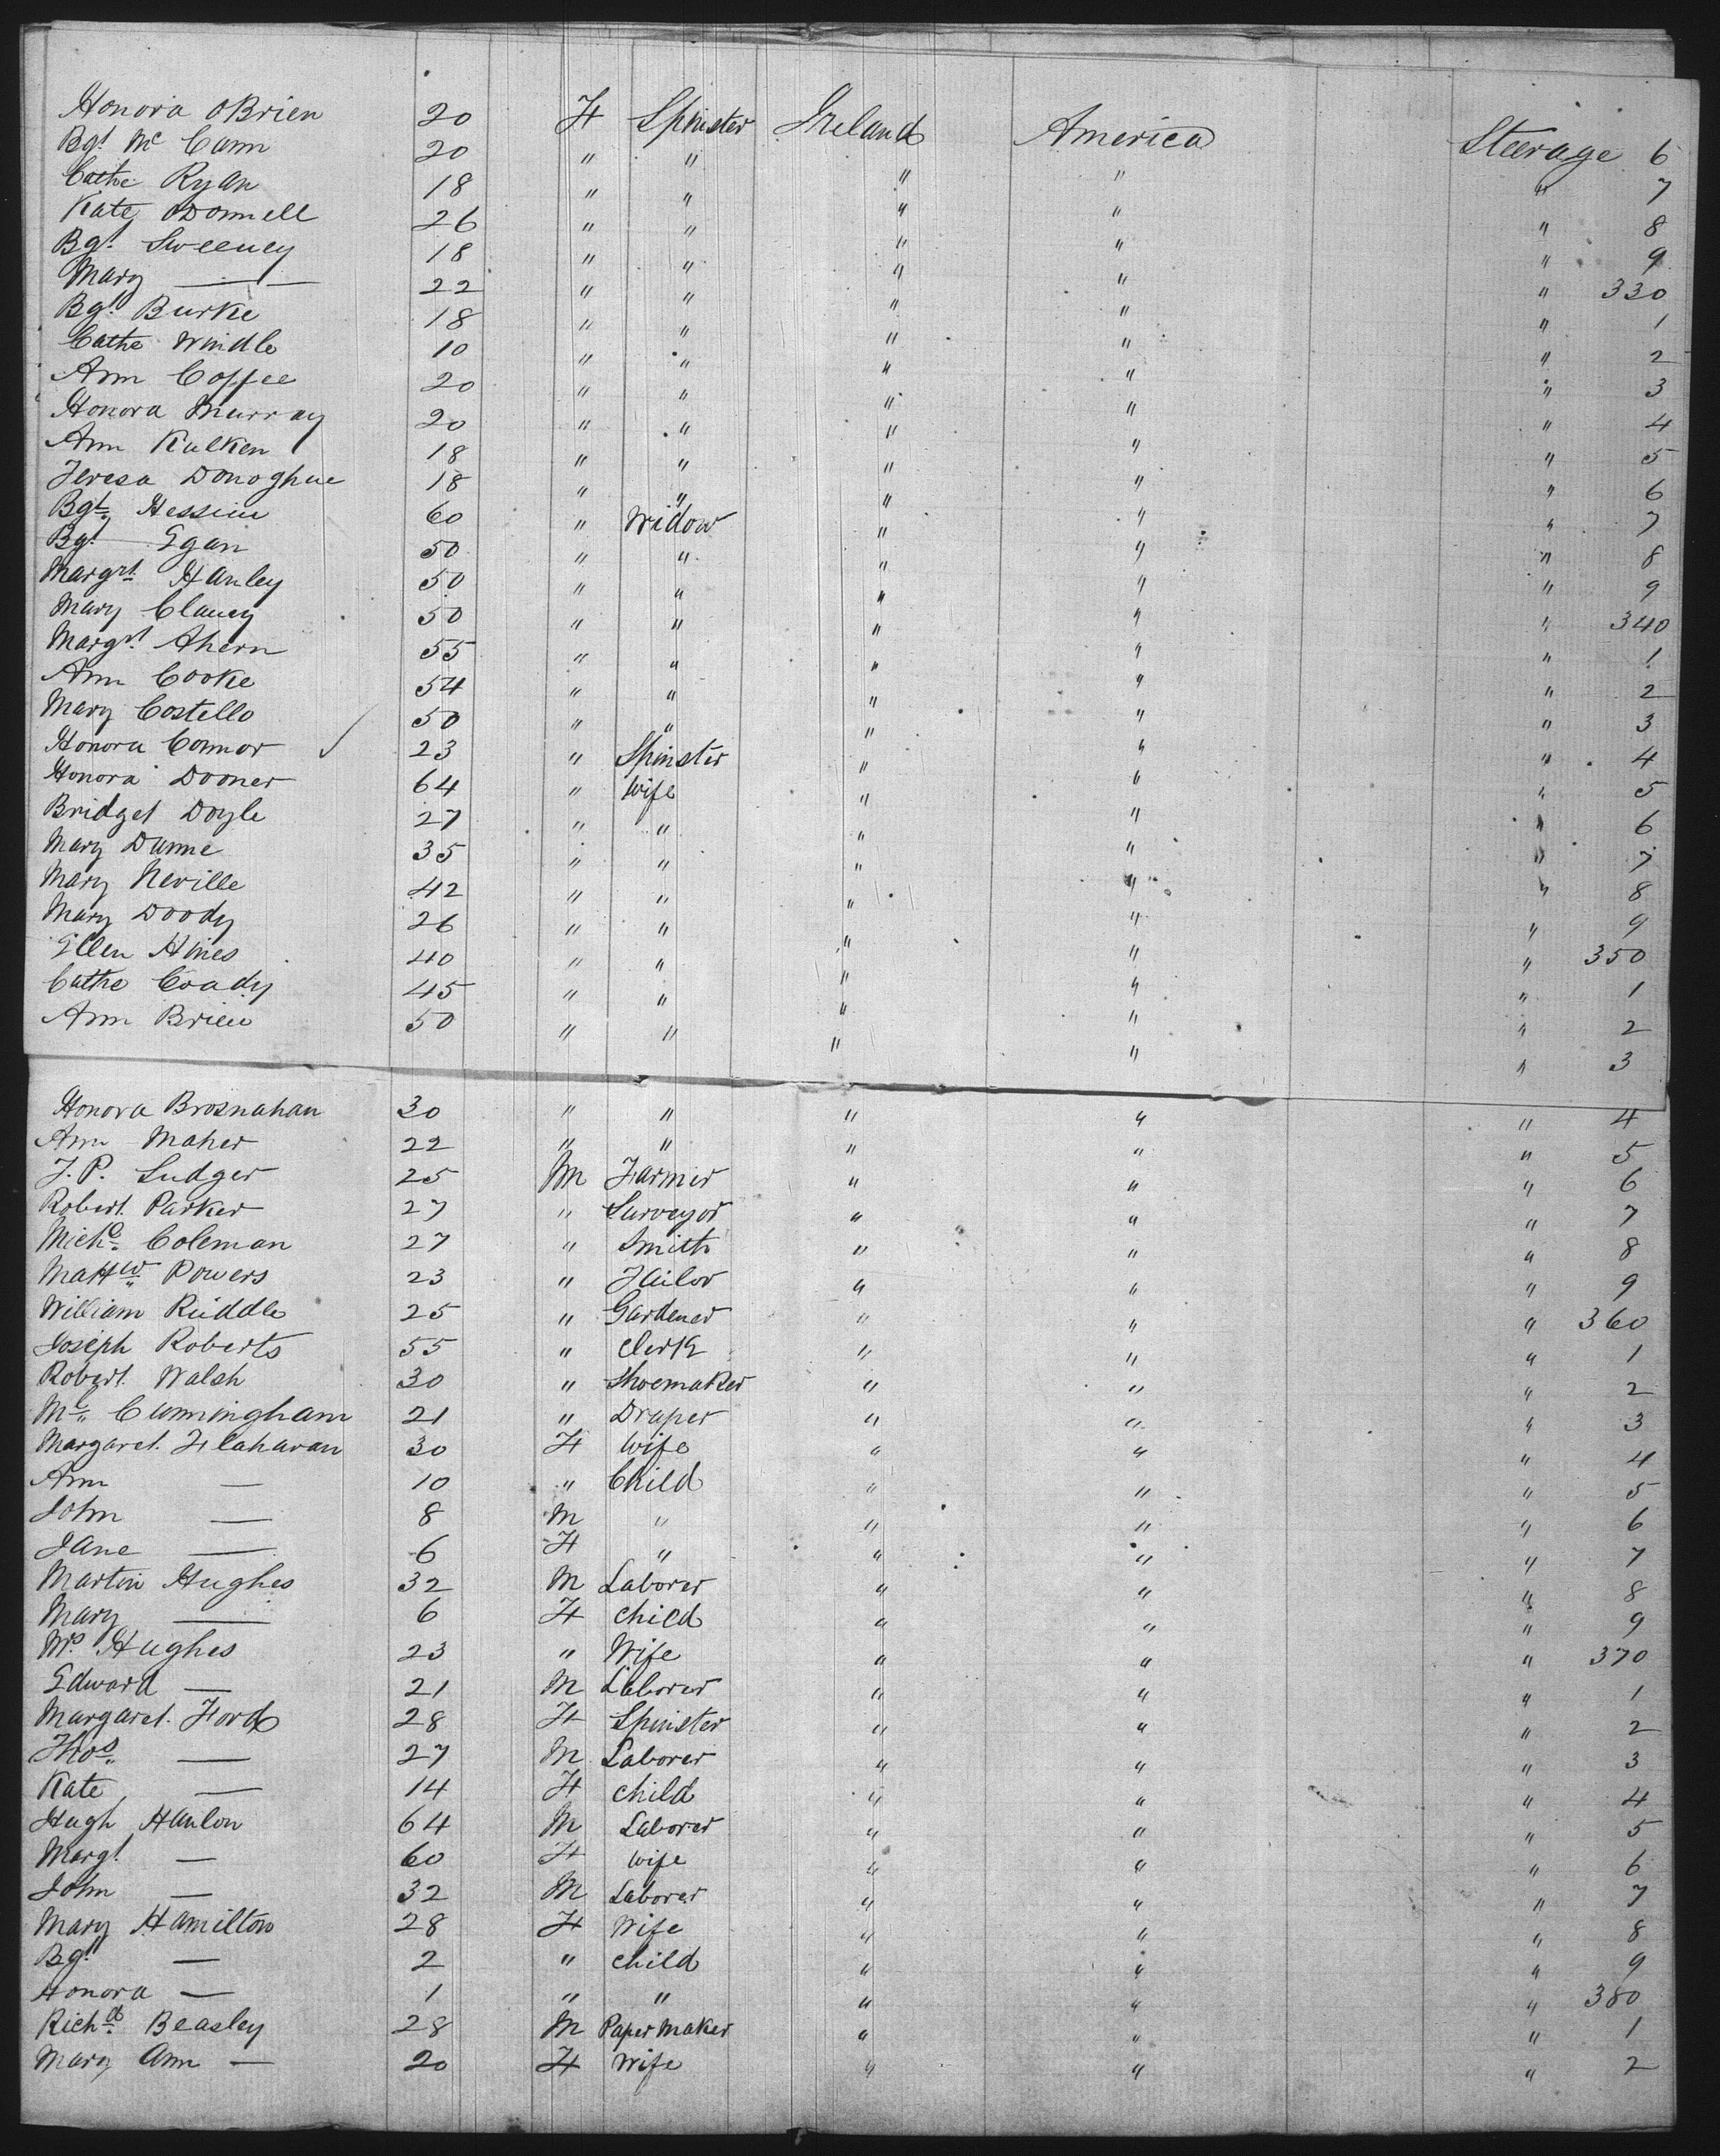 Honora OBrien 20 F Spinster Ireland America Steerage 6
Bgt. Mc Cann 20 " " " " " 7
Cathe Ryan 18 " " " " " 8
Kate ODonnell 26 " " " " " 9
Bgt. Sweeney 18 " " " " " 330
Mary — 22 " " " " " 1
Bgt. Burke 18 " " " " " 2
Cathe Windle 10 " " " " " 3
Ann Coffee 20 " " " " " 4
Honora Murray 20 " " " " " 5
Ann Kulken 18 " " " " " 6
Teresa Donoghue 18 " " " " " 7
Bgt. Hession 60 " Widow " " " 8
Bgt Egan 50 " " " " " 9
Margrt. Hanley 50 " " " " " 340
Mary Clancy 50 " " " " " 1
Margrt. Ahern 55 " " " " " 2
Ann Cooke 54 " " " " " 3
Mary Costello 50 " " " " " 4
Honora Connor ✓ 23 " Spinster " " " 5
Honora Dooner 64 " Wife " " " 6
Bridget Doyle 27 " " " " " 7
Mary Dunne 35 " " " " " 8
Mary Neville 42 " " " " " 9
Mary Doody 26 " " " " " 350
Ellen Hines 40 " " " " " 1
Cathe Coady 45 " " " " " 2
Ann Brien 50 " " " " " 3
Honora Brosnahan 30 " " " " " 4
Ann Maher 22 " " " " " 5
J. P. Ludger 25 M Farmer " " " 6
Robert Parker 27 " Surveyor " " " 7
Michl. Coleman 27 " Smith " " " 8
Mattw. Powers 23 " Tailor " " " 9
William Ruddle 25 " Gardener " " " 360
Joseph Roberts 55 " Clerk " " " 1
Robert Walsh 30 " Shoemaker " " " 2
Ml. Cunningham 21 " Draper " " " 3
Margaret Flahavan 30 F Wife " " " 4
Ann — 10 " Child " " " 5
John — 8 M " " " " 6
Jane — 6 F " " " " 7
Martin Hughes 32 M Laborer " " " 8
Mary — 6 F Child " " " 9
Mrs. Hughes 23 " Wife " " " 370
Edward — 21 M Laborer " " " 1
Margaret Ford 28 F Spinster " " " 2
Thos. — 27 M Laborer " " " 3
Kate — 14 F Child " " " 4
Hugh Hanlon 64 M Laborer " " " 5
Margt. — 60 F Wife " " " 6
John — 32 M Laborer " " " 7
Mary Hamilton 28 F Wife " " " 8
Bgt. — 2 " Child " " " 9
Honora — 1 " " " " " 380
Richd. Beasley 28 M Paper Maker " " " 1
Mary Ann — 20 F Wife " " " 2